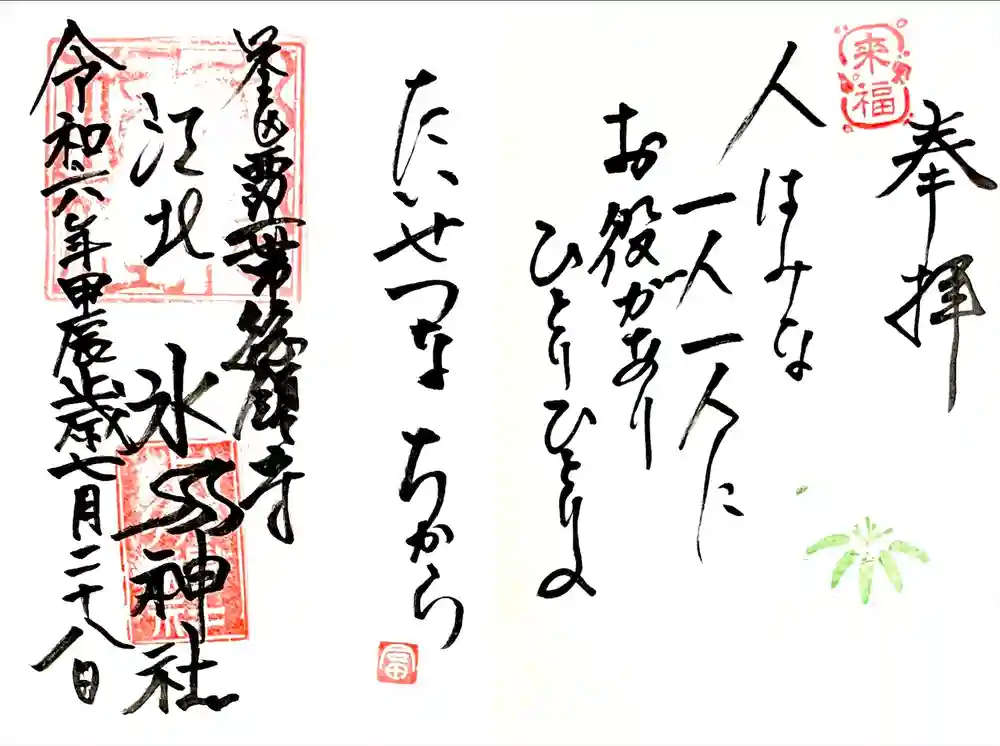 来福
奉拝
人はみな
一人一人に
お役があり
ひとりひとりの
たいせつな ちから
江北 氷川神社
令和六年甲辰歳七月二十八日